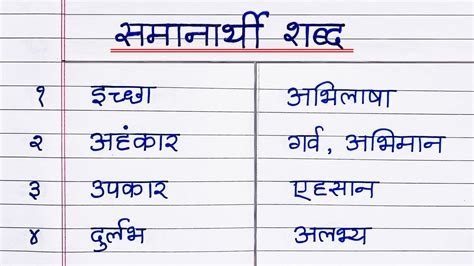 समानार्थी शब्द
१ इच्छा अभिलाषा
२ अहंकार गर्व, अभिमान
३ उपकार एहसान
४ दुर्लभ अलभ्य